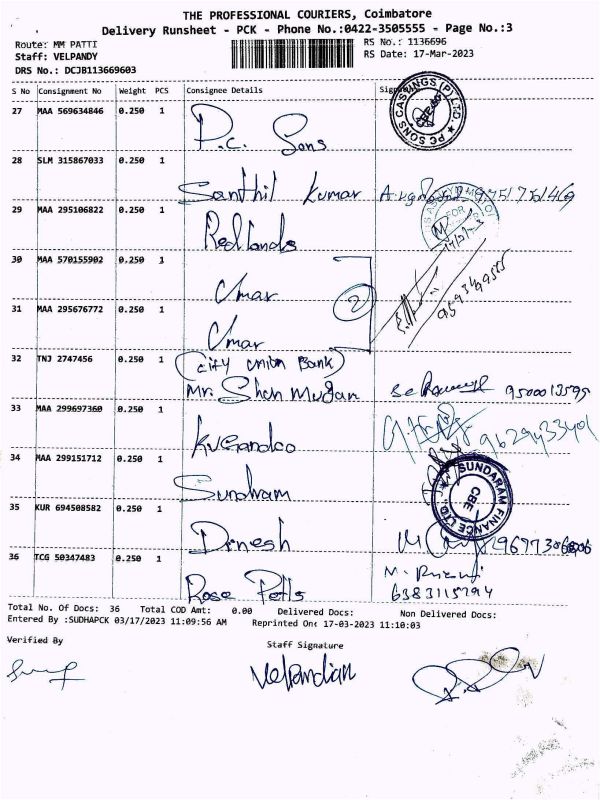 THE PROFESSIONAL COURIERS, Coimbatore
Delivery Runsheet - PCK - Phone No.:0422-3505555 - Page No.:3
Route: MM PATTI
RS No.: 1136696
Staff: VELPANDY
RS Date: 17-Mar-2023
DRS No.: DCJB113669603
S No Consignment No Weight PCS Consignee Details
27 MAA 569634846 0.250 1 P.C. Sons
PC SONS CASTINGS (P) LTD.
28 SLM 315867033 0.250 1 Santhil Kumar 9751751469
29 MAA 295106822 0.250 1 Redlands
FOR
30 MAA 570155902 0.250 1 Umar
2
31 MAA 295676772 0.250 1 Umar
32 TNJ 2747456 0.250 1 (City Union Bank)
Mr. Shan Mugan 9500013595
33 MAA 299697360 0.250 1 KVGandCo 9629433401
34 MAA 299151712 0.250 1 Sundram
SUNDARAM FINANCE LTD. CBE
35 KUR 694508582 0.250 1 Dinesh
36 TCG 50347483 0.250 1 Rose Petls
6383115294
Total No. Of Docs: 36 Total COD Amt: 0.00 Delivered Docs: Non Delivered Docs:
Entered By :SUDHAPCK 03/17/2023 11:09:56 AM Reprinted On: 17-03-2023 11:10:03
Verified By
Staff Signature
Velpandian